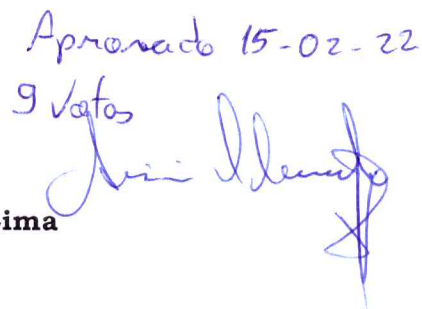 Aprovado 15-02-22
9 Votos
ima